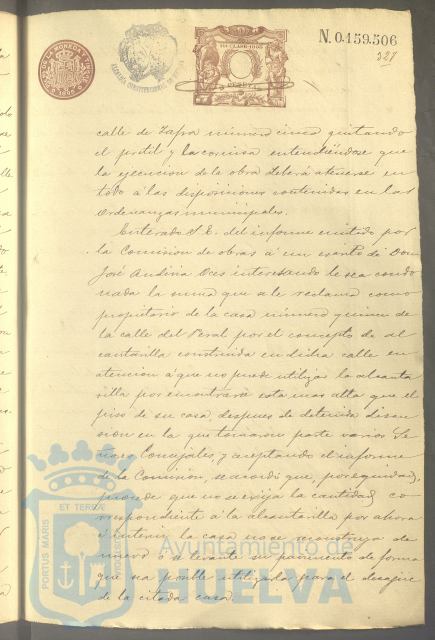 N. 0.159.506
327
11ª CLASE-1905
calle de Zafra número cinco quitando
el pretil y la cornisa entendiéndose que
la ejecucion de la obra deberá atenerse en
todo á las disposiciones contenidas en las
Ordenanzas municipales.
Enterado S. E. del informe emitido por
la Comision de obras á un escrito de Don
José interesando le sea condo
nada la suma que se le reclama como
propietario de la casa número quince de
la calle del Peral por el concepto de al
cantarilla construida en dicha calle en
atencion á que no puede utilizar la alcanta
rilla por encontrarse esta mas alta que el
piso de su casa despues de detenida discu
sion en la que tomaron parte varios Se
ñores Concejales, y aceptando el informe
de la Comision, se acordó que, por equidad,
procede que no se exija la cantidad co
rrespondiente á la alcantarilla por ahora
é interin la casa no se reconstruya de
nuevo ó levante su pavimento de forma
que sea posible utilizarla para el desagüe
de la citada casa.
PORTUS MARIS
ET TERRÆ
Ayuntamiento de
HUELVA